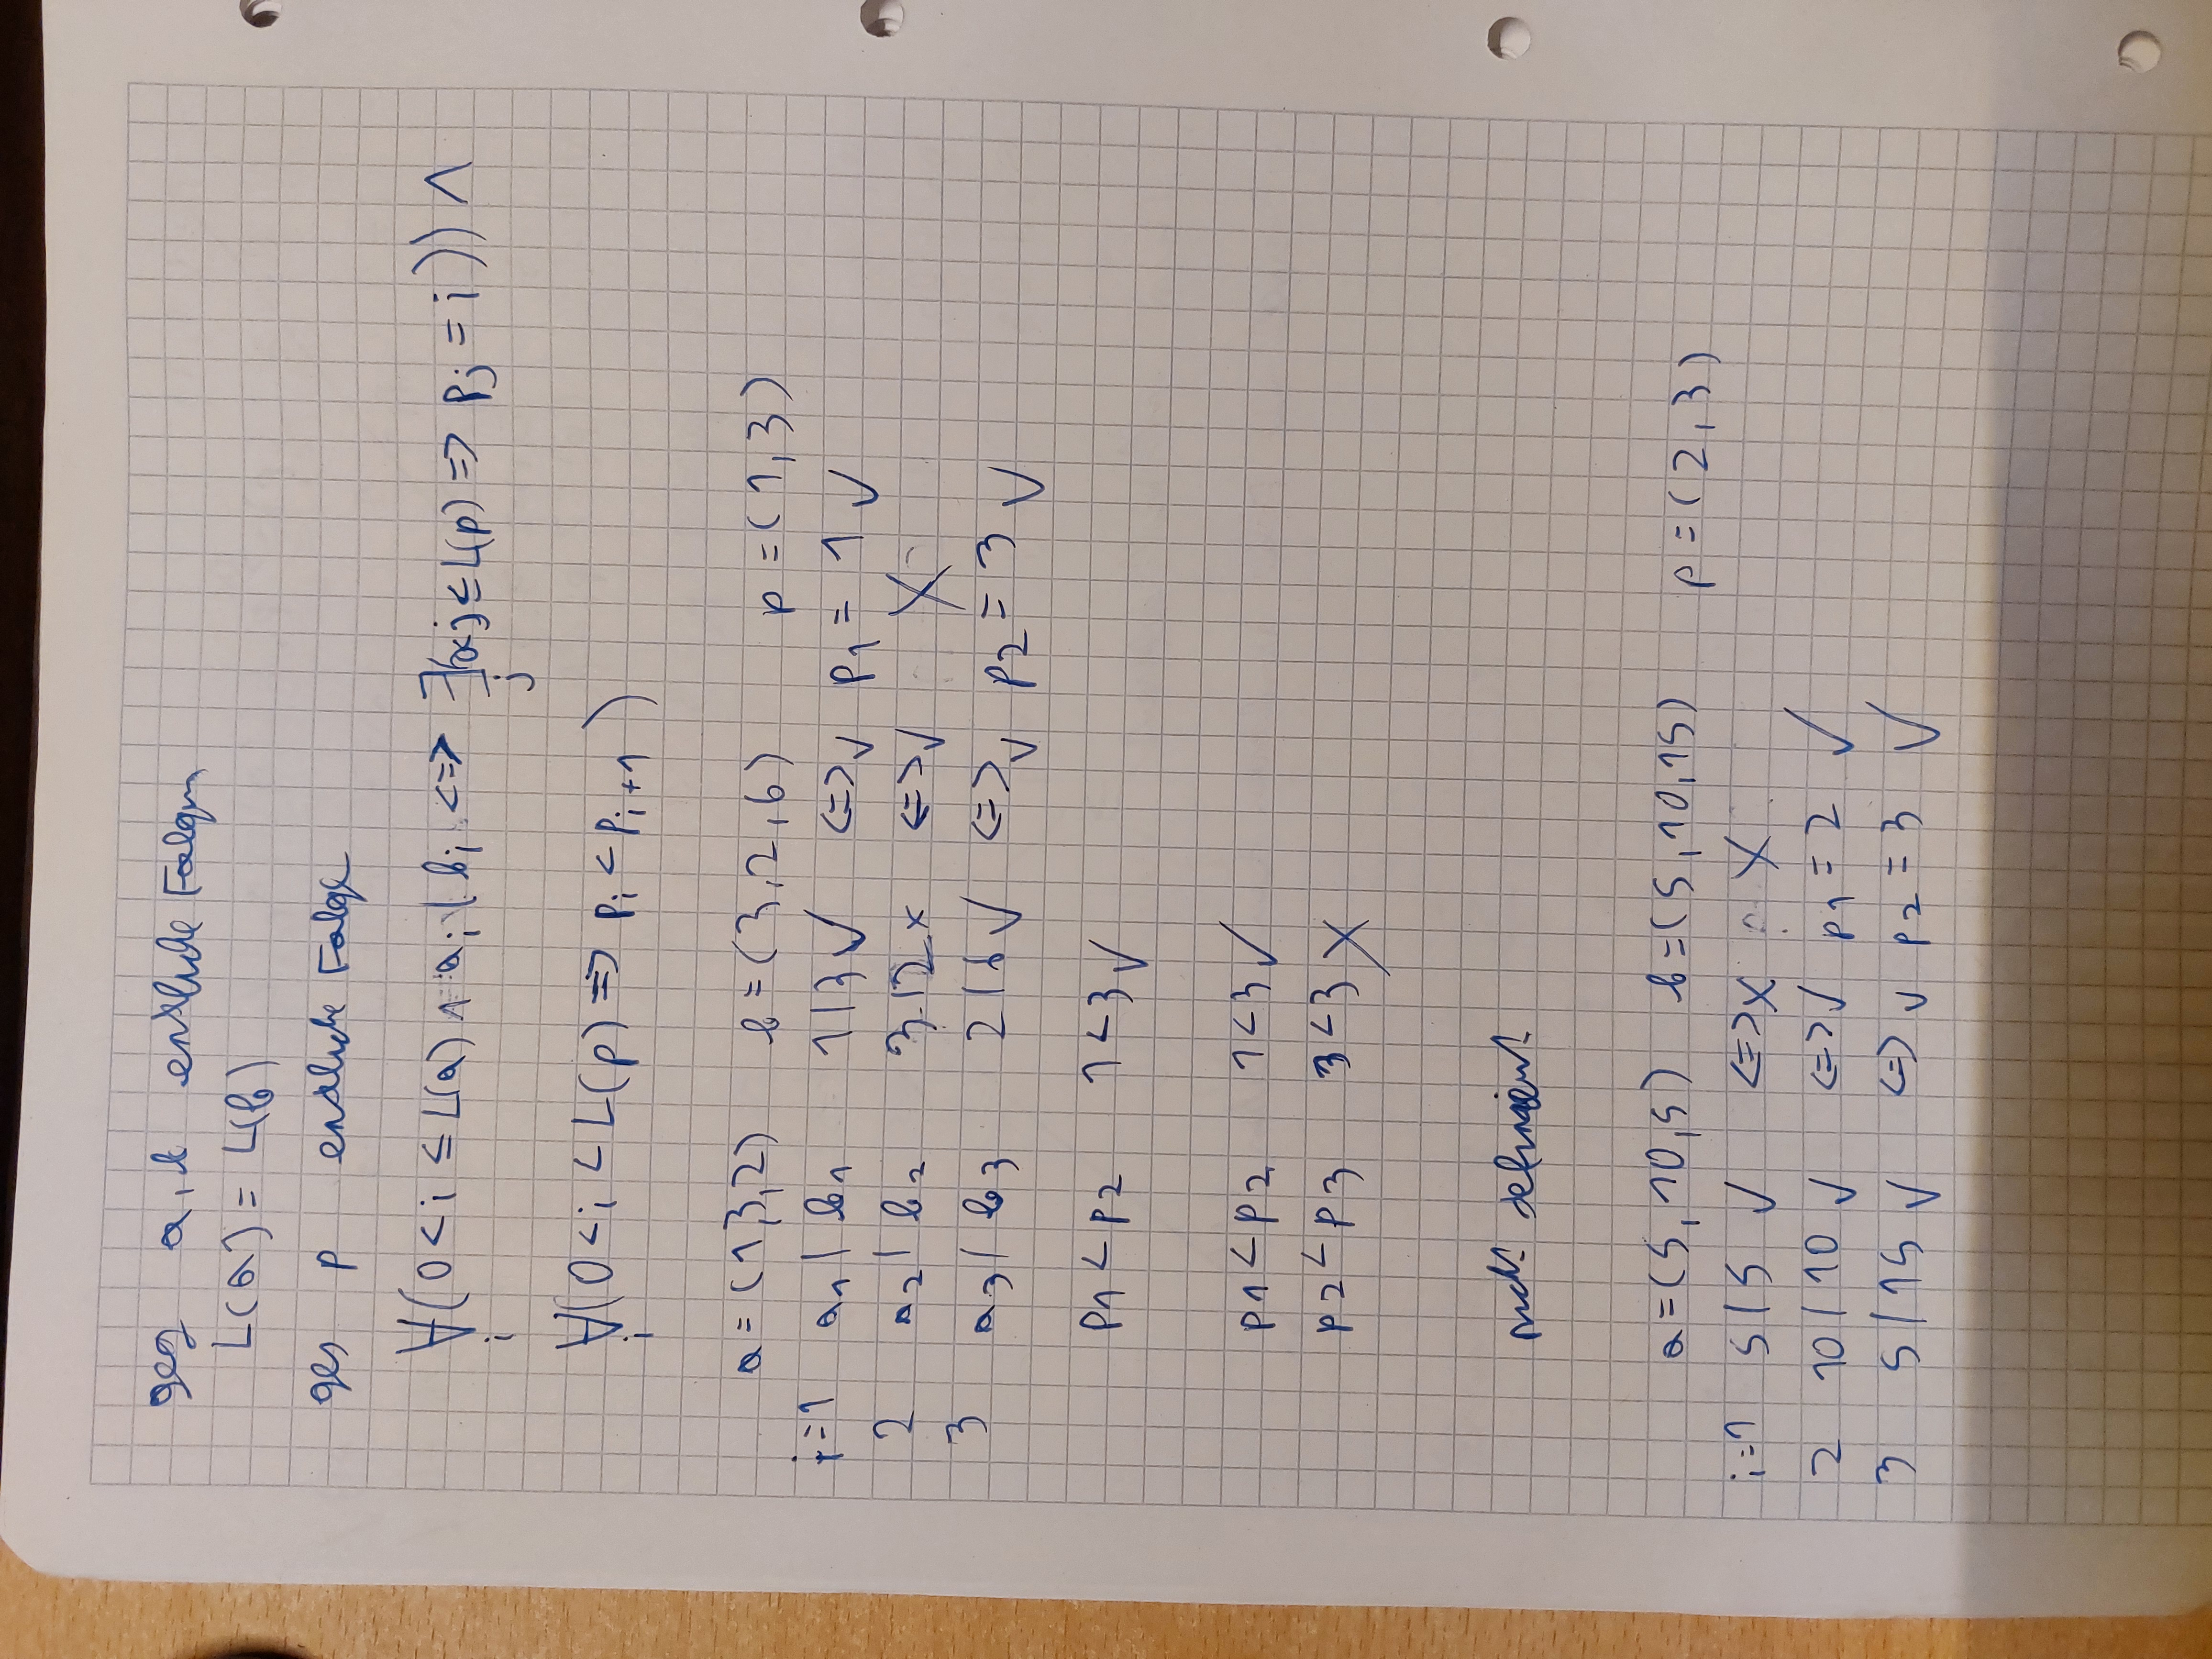 geg a, b endliche Folgen
L(a) = L(b)
ges p endliche Folge
∀(0 < i ≤ L(a) ∧ a_i | b_i <=> ∃(0<j ≤ L(p) => p_j = i)) ∧
i j
∀(0 < i < L(p) => p_i < p_{i+1})
i
a = (1,3,2) b = (3,2,6) p = (1,3)
i=1 a₁ | b₁ 1|3 ✓ <=> ✓ p₁ = 1 ✓
2 a₂ | b₂ 3|2 x <=> ✓ X
3 a₃ | b₃ 2|6 ✓ <=> ✓ p₂ = 3 ✓
p₁ < p₂ 1 < 3 ✓
p₁ < p₂ 1 < 3 ✓
p₂ < p₃ 3 < 3 X
nicht definiert
a = (5,10,5) b = (5,10,15) p = (2,3)
i=1 5|5 ✓ <=> x X
2 10|10 ✓ <=> ✓ p₁ = 2 ✓
3 5|15 ✓ <=> ✓ p₂ = 3 ✓